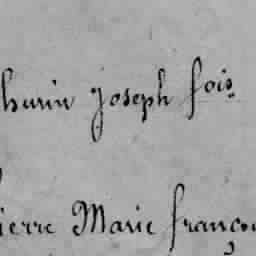 hurin joseph fois
ierre Marie françoi